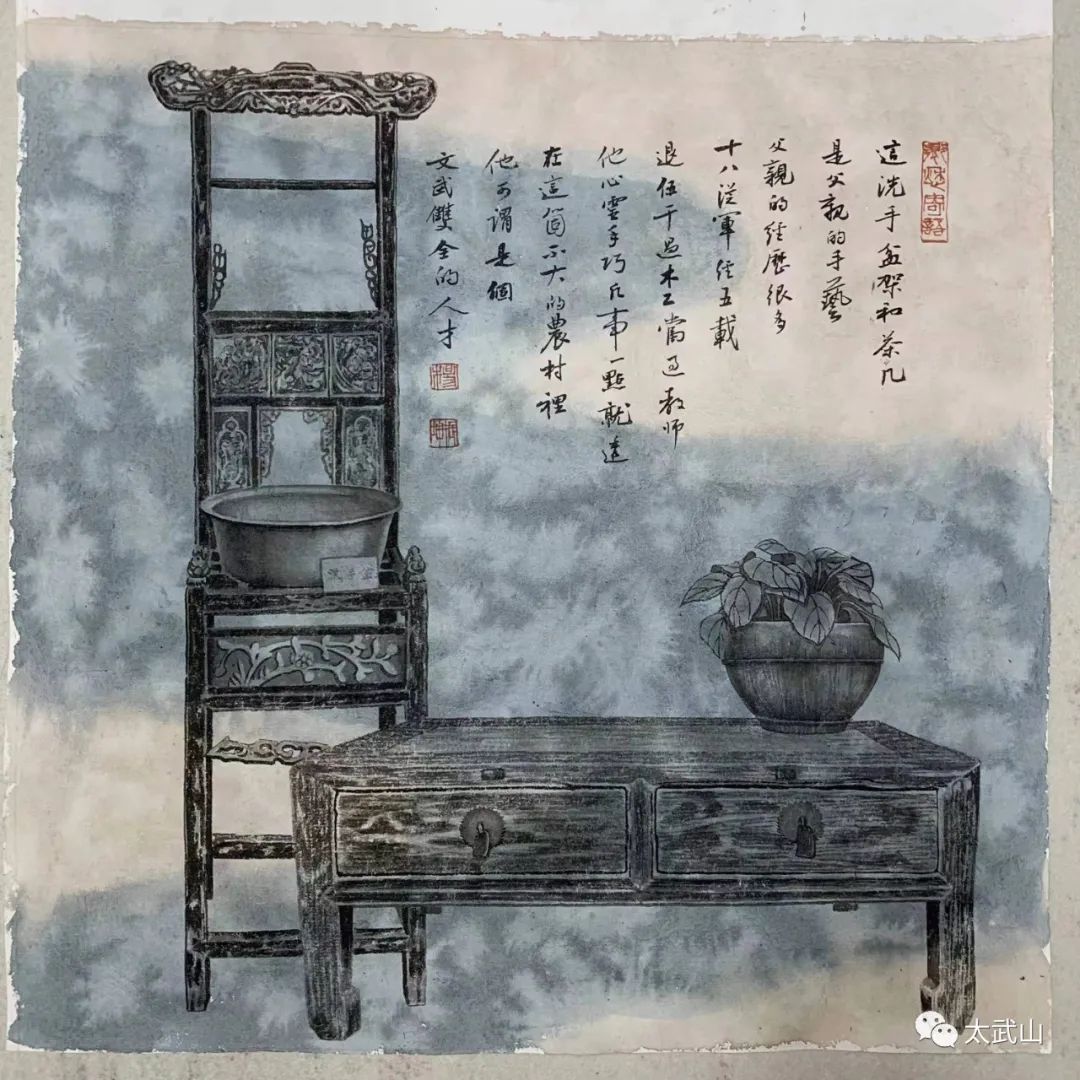 鄉愁寄語
這洗手盆架和茶几
是父親的手藝
父親的經歷很多
十八從軍經五載
退伍干過木工當過教師
他心靈手巧凡事一點就達
在這個不大的農村裡
他可謂是個
文武雙全的人才
楊
洗手盆
太武山